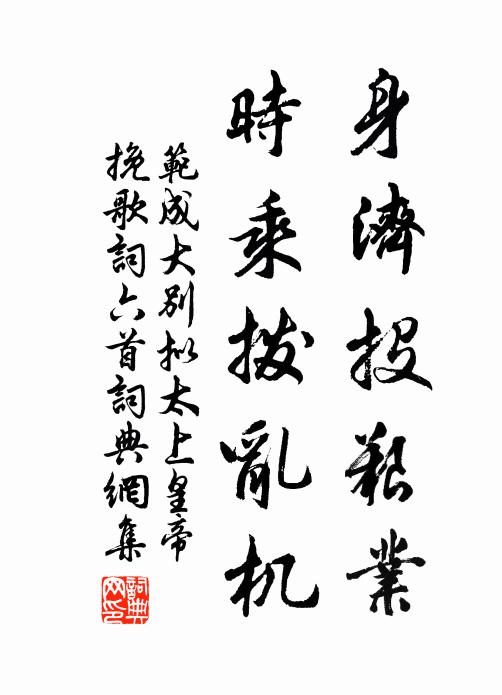 身濟投艱業
時乘撥亂机
範成大别拟太上皇帝
挽歌詞六首詞典網集
詞典
网印